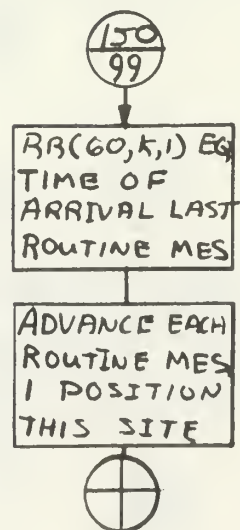 150
99
RR(60,K,1) EQ
TIME OF
ARRIVAL LAST
ROUTINE MES
ADVANCE EACH
ROUTINE MES
1 POSITION
THIS SITE